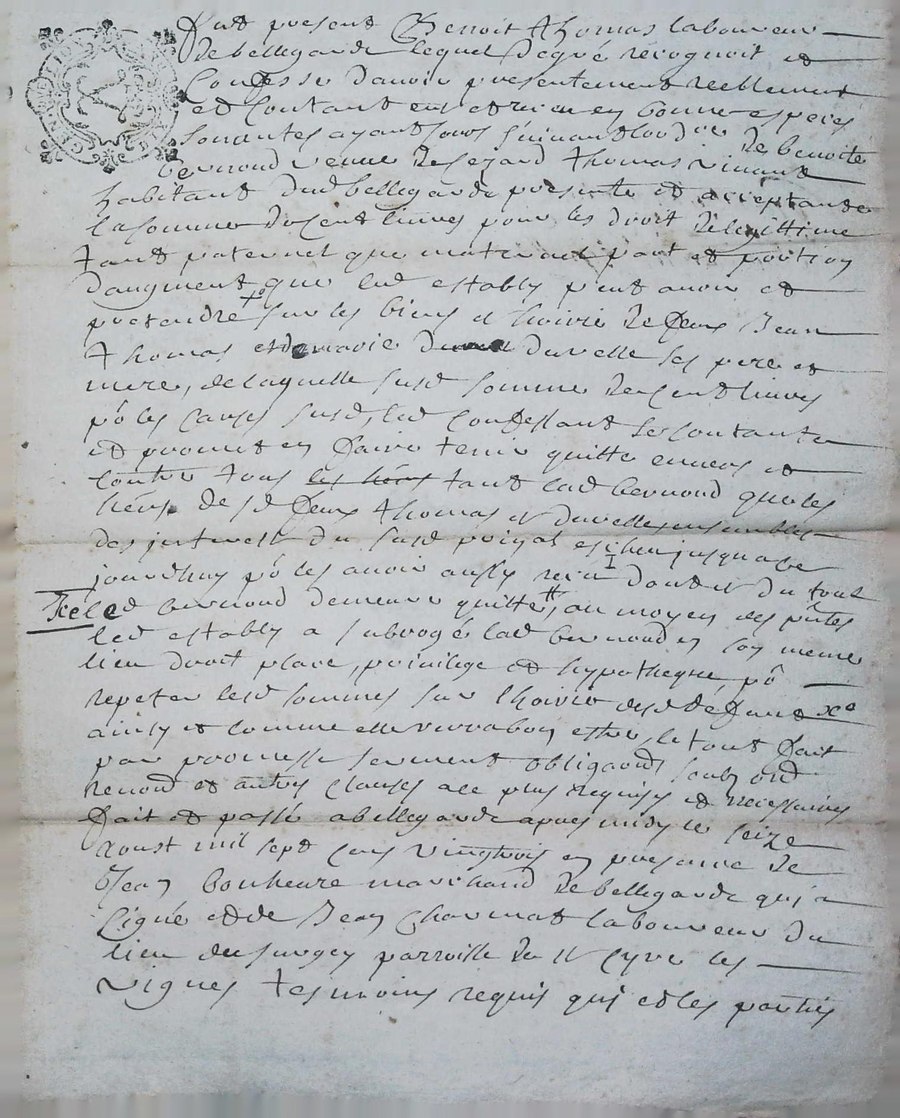 Fut present Benoit Thomas laboureur
de bellegarde lequel de gré recognoit et
Confesse d'avoir presentement reellement
et Contant eu et receu en bonnes espèces
sonantes ayant cours suivant lordre de benoite
bernoud veuve de Thomas vivant
habitant dud bellegarde presente et acceptante
la somme de Cent livres pour les droit de legittime
tant paternel que maternel part et portion
daugment que led estably peut avoir et
pretendre sur les biens et hoirie de feux Jean
Thomas et de marie duvelle ses pere et
mere, de laquelle susd somme de Cent livres
po les causes susd, led Confessant se contante
et promet en faire tenir quitte envers et
contre tous les hers tant lad bernoud que les
hers desd feux Thomas et duvelle ensembles
des interests du susd principal escheu jusqua ce
jourdhuy po les avoir aussy receu dont et du tout
lad bernoud demeure quitte, au moyen des pntes
led estably a subrogé lad bernoud en son meme
lieu droit place, privilege et hypotheque po
repeter lesd sommes sur lhoirie desd defunts
ainsy et comme elle verra bon estre, le tout fait
par promesse serment obligaon soubz
renond et autres clauses ace plus requises et necessaires
fait et passé a bellegarde apres midy le seize
aoust mil sept cens vingtrois en presence de
Jean bonheure marchand de bellegarde qui a
signé et de Jean Charmat laboureur du
lieu du surgey parroisse de st Cyre les
vignes tesmoins requis qui et les parties